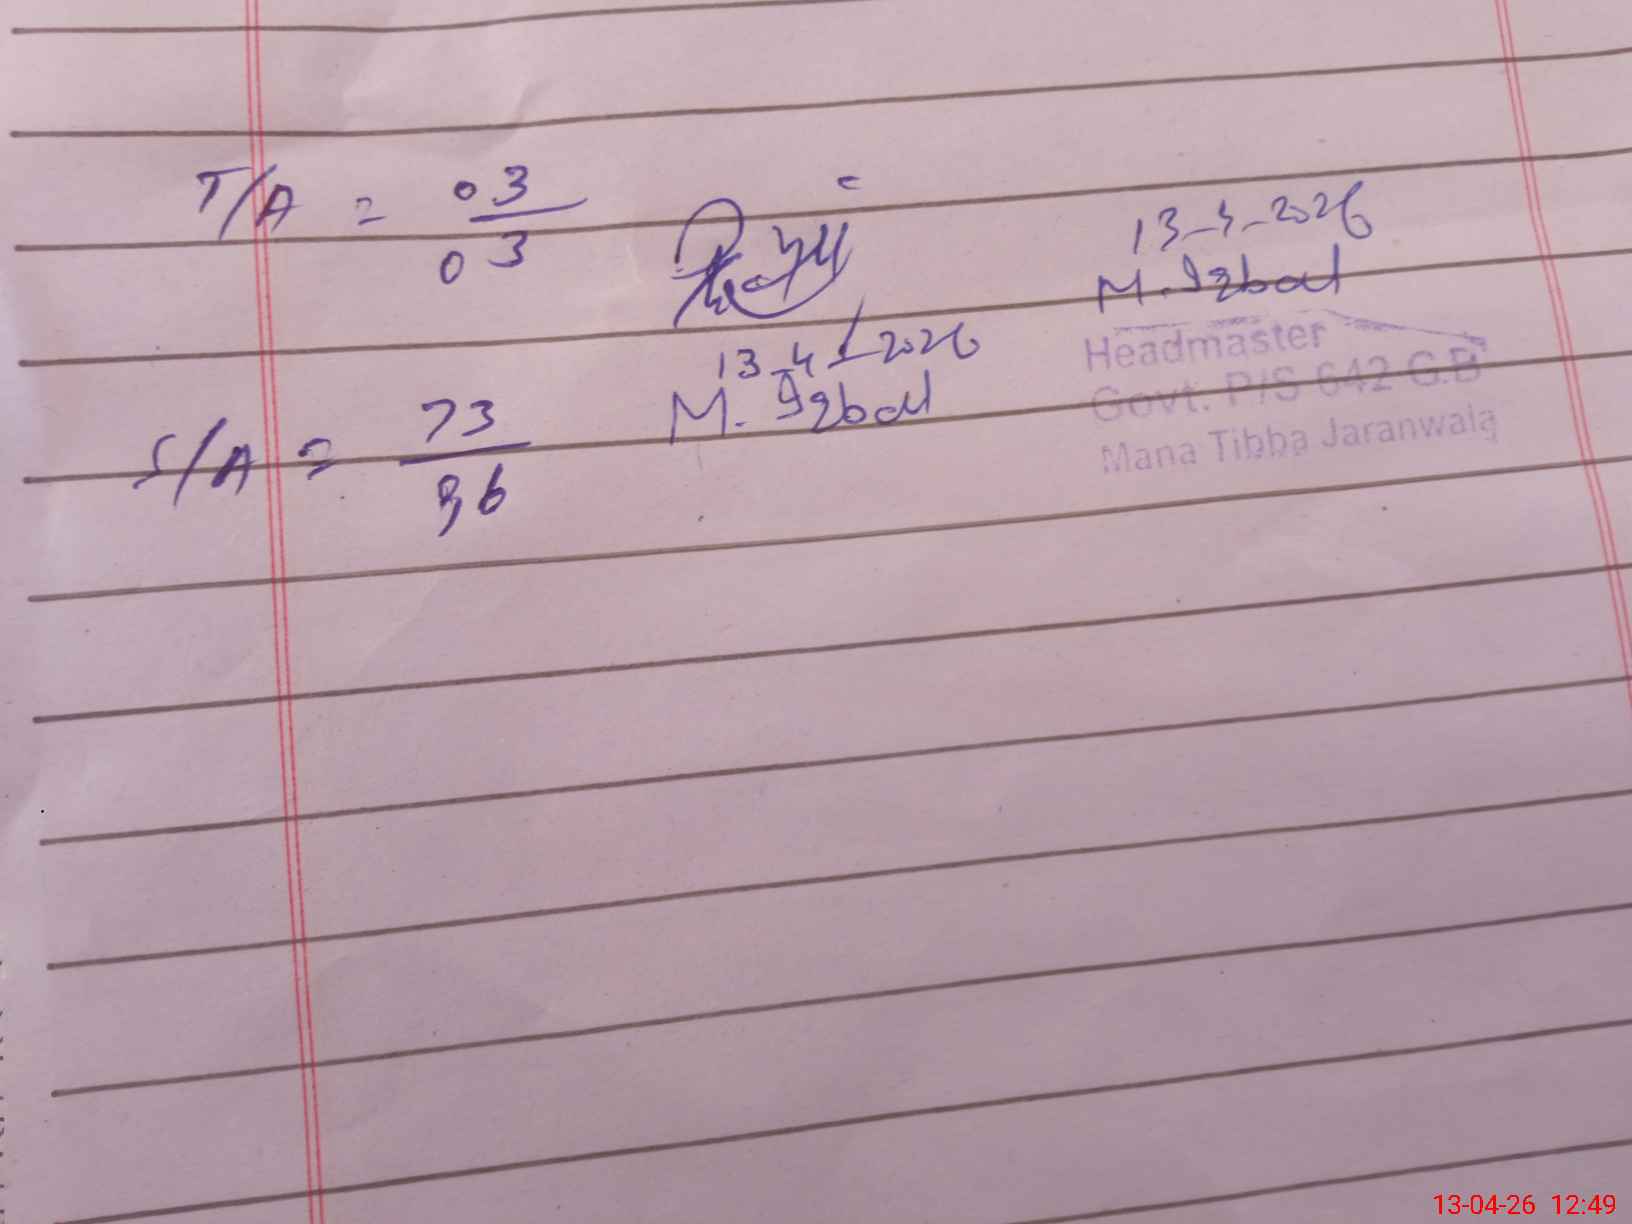 T/A = 03/03
13-4-2026
M. Iqbal
S/A = 73/96
13-4-2026
M. Iqbal
Headmaster
Govt. P/S 642 G.B
Mana Tibba Jaranwala
13-04-26 12:49